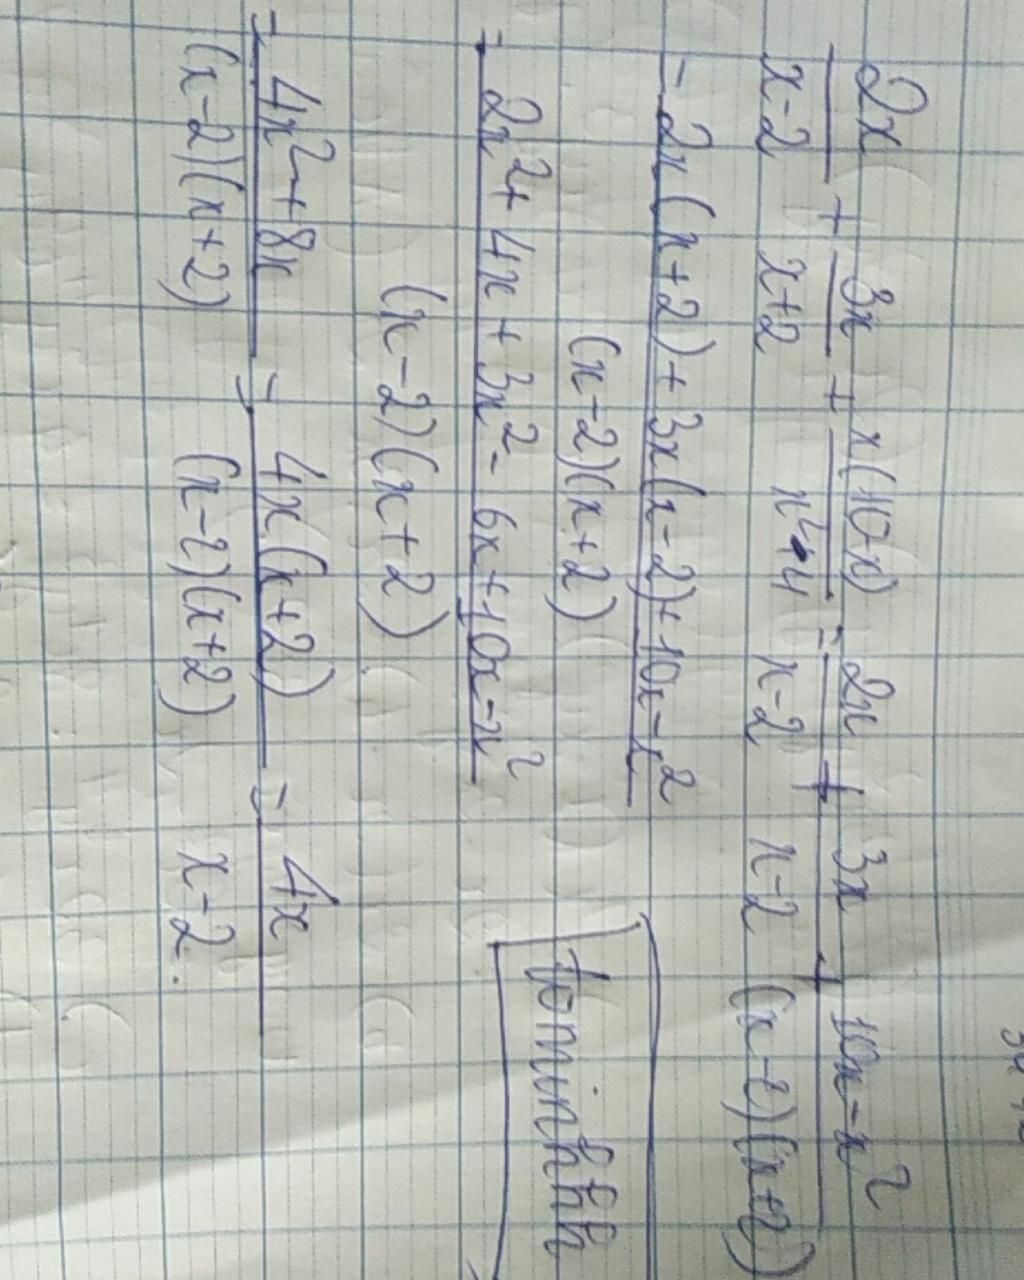 2x/(x-2) + 3x/(x+2) + x(10-x)/(x²-4) = 2x/(x-2) + 3x/(x-2) + (10x-x²)/((x-2)(x+2))
= (2x(x+2)+3x(x-2)+10x-x²)/((x-2)(x+2))
= (2x²+4x+3x²-6x+10x-x²)/((x-2)(x+2))
= (4x²+8x)/((x-2)(x+2)) = 4x(x+2)/((x-2)(x+2)) = 4x/(x-2).
tominhhh